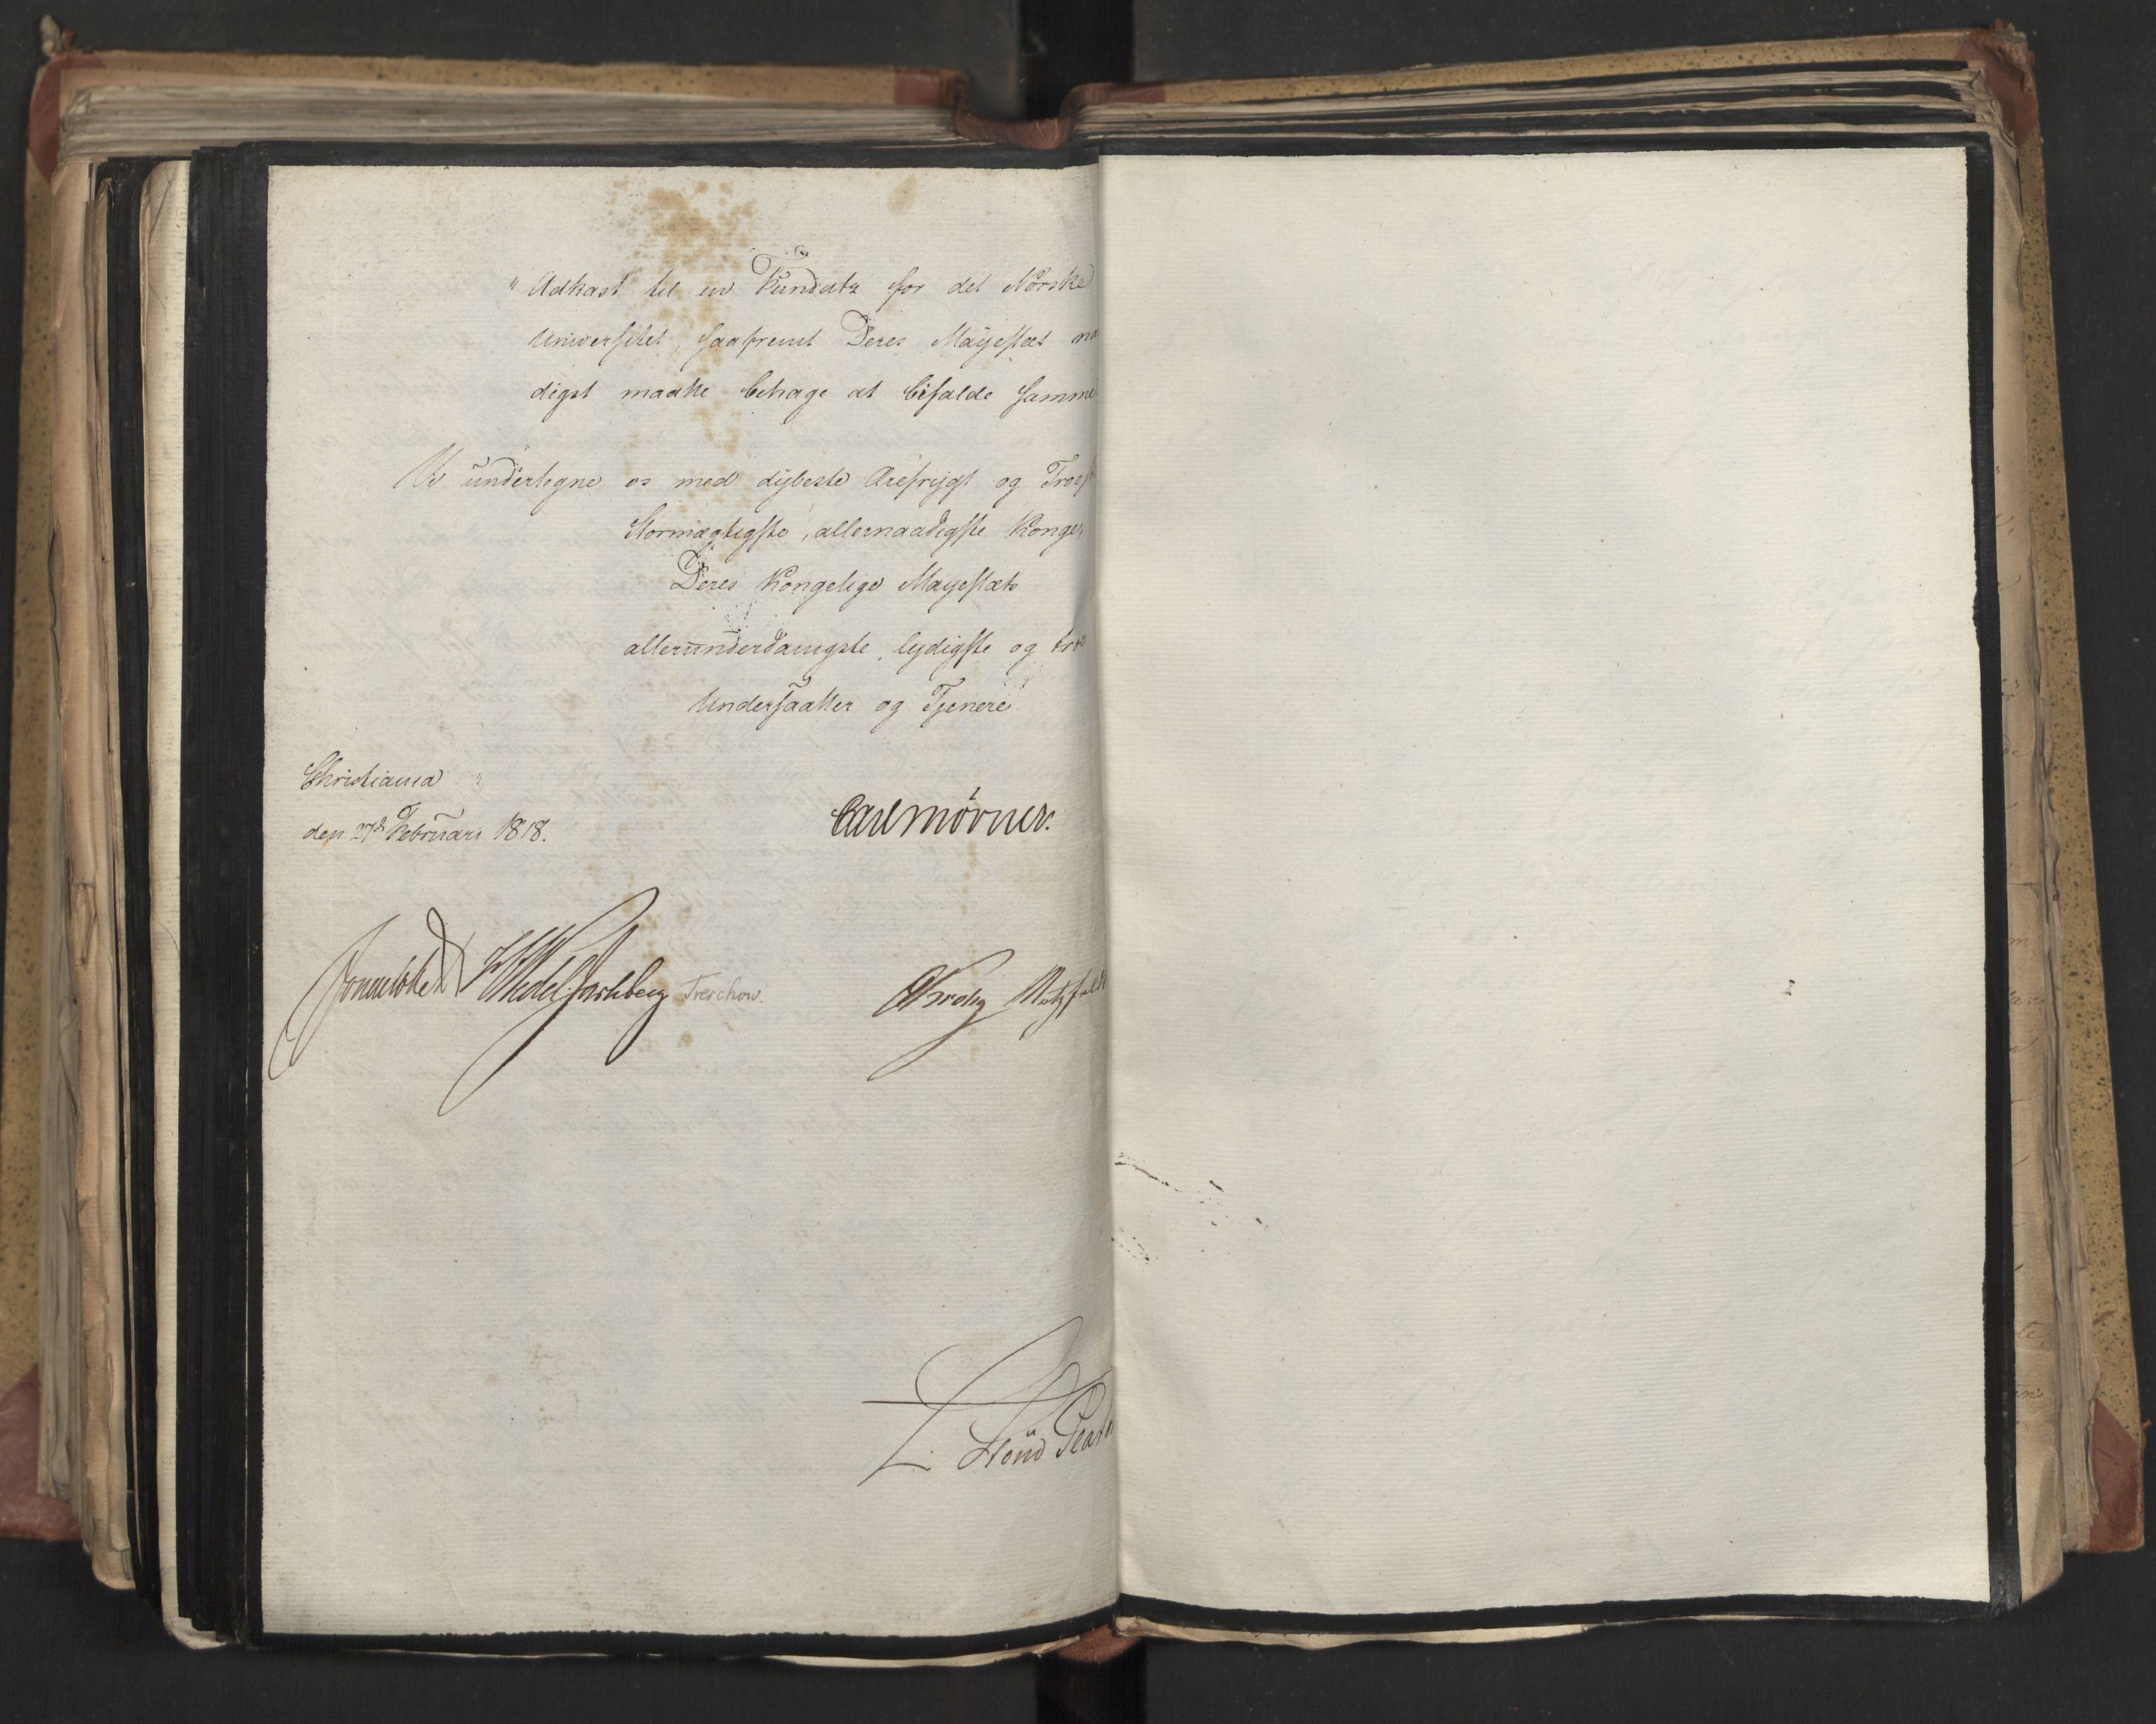 " Udkast til en Fundatz for det Norske
Universitet, saafremt Deres Mayestæt na
digst maatte behage at bifalde samme
Vi undertegne os med dybeste Ærefrygt og
Stormægtigste, allernaadigste Konge,
Deres Kongelige Mayestæts
allerunderdanigste, lydigste og tro
Undersaatter og Tjenere
Christiania
den 27de Februari 1818.
Carl Mörner.
Sommerhielm HWedel Jarlsberg Treschow. Motzfeldt